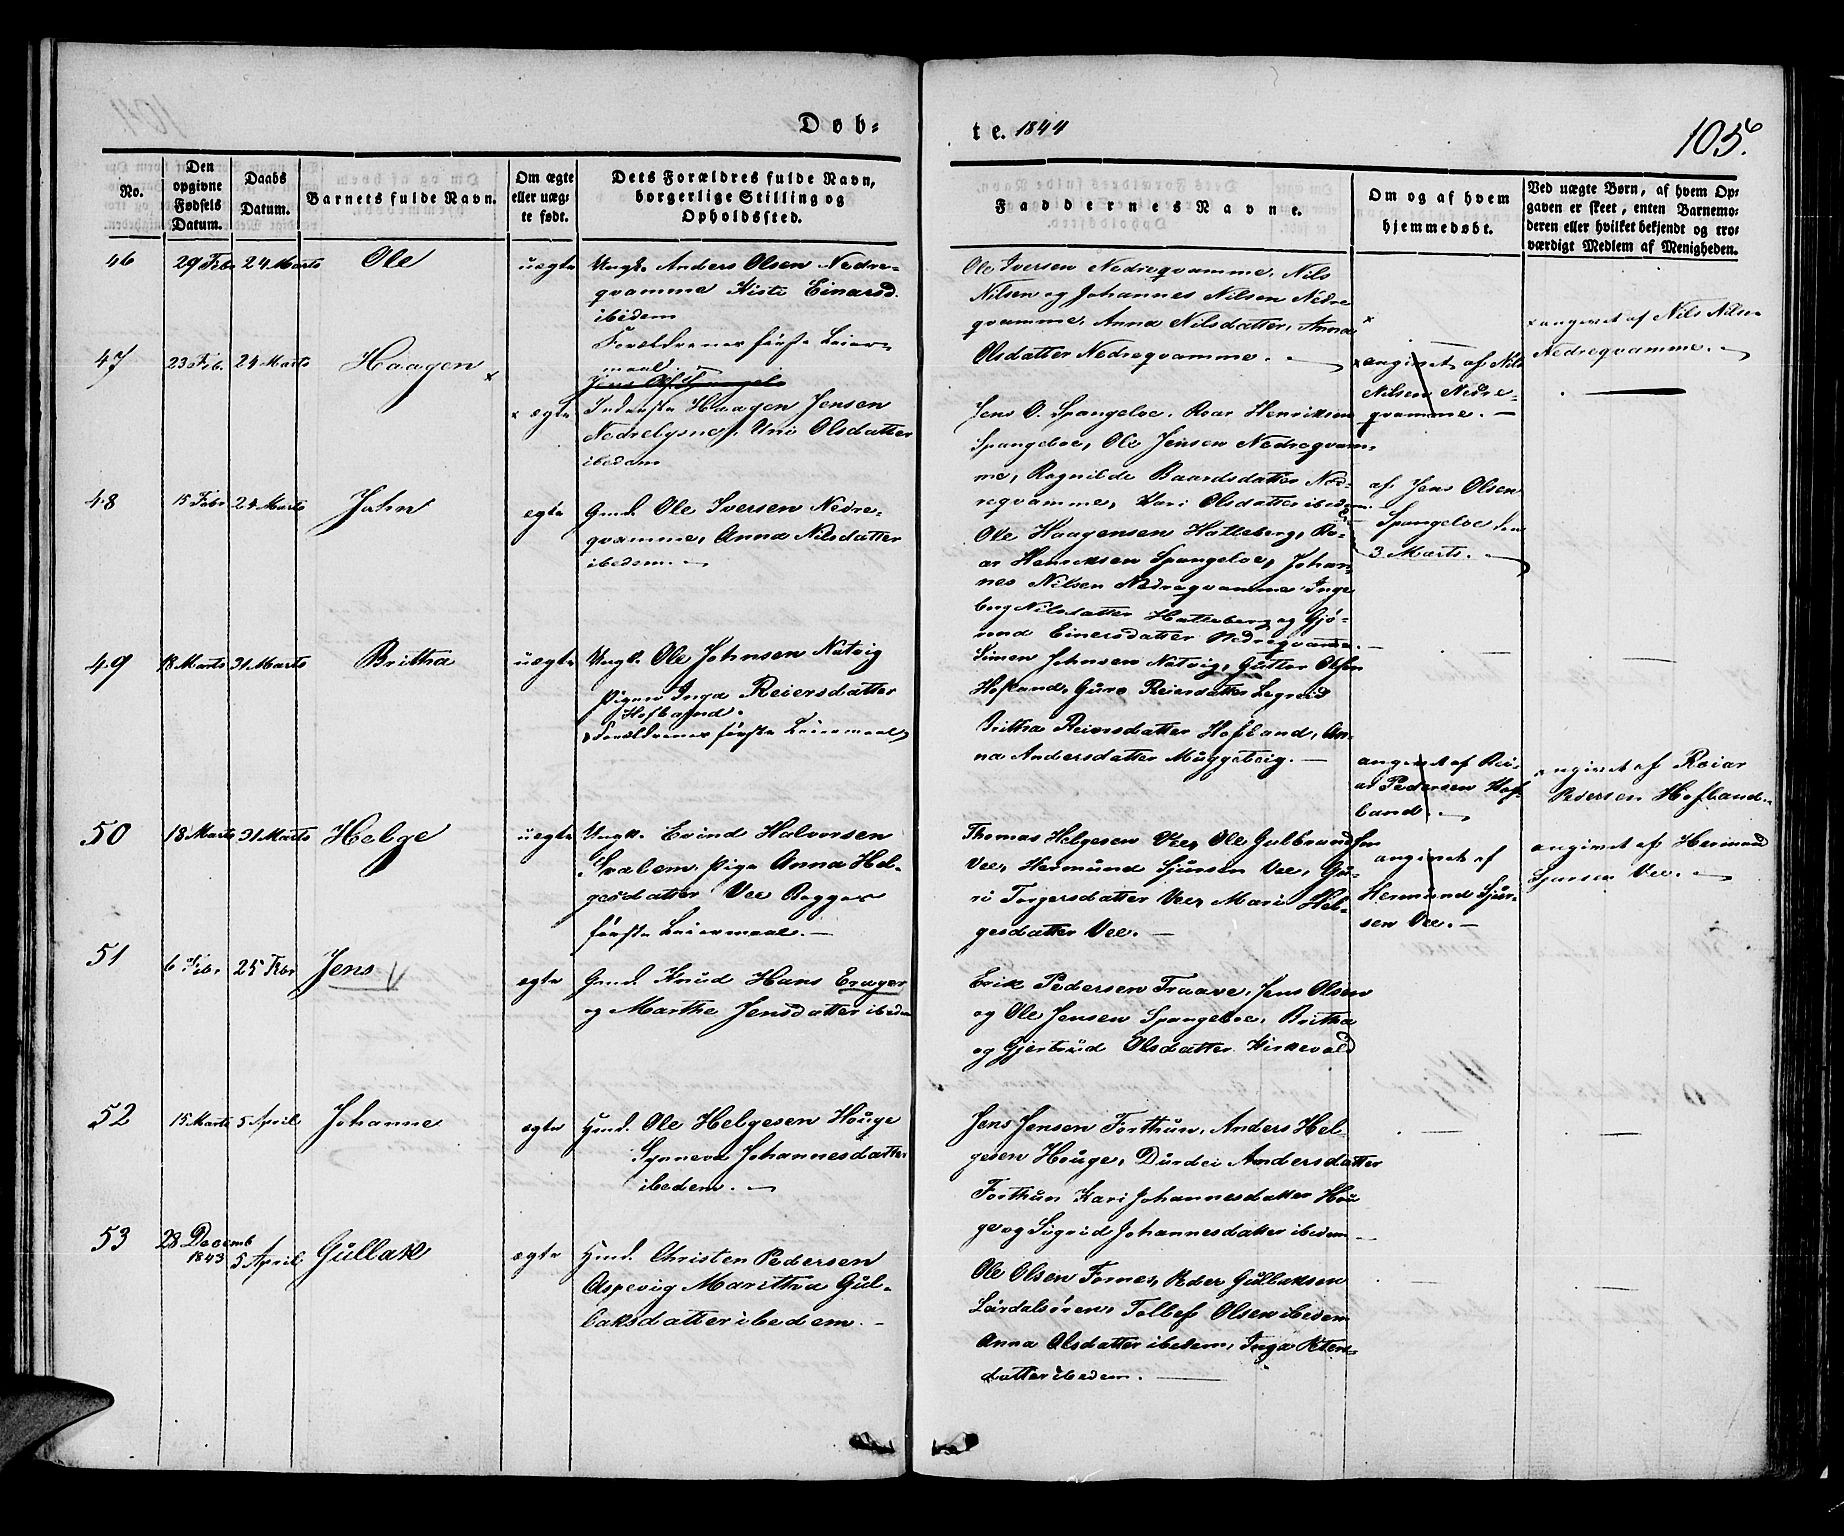 Døb-
te. 1844
105.
No.
Den opgivne Fødsels Datum.
Daabs Datum.
Barnets fulde Navn.
Om ægte eller uægte født.
Dets Forældres fulde Navn, borgerlige Stilling og Opholdssted.
Faddernes Navne.
Om og af hvem hjemmedøbt.
Ved uægte Børn, af hvem Opgaven er skeet, enten Barnemoderen eller hvilket bekjendt og troværdigt Medlem af Menigheden.
46 29 Febr 24 Marts Ole uægte
Ungk. Anders Olsen Nedre-
qvamme Kisti Einarsd.
ibidem
Forældrenes første Leier-
maal
Ole Iversen Nedreqvamme, Nils
Nilsen og Johannes Nilsen Nedre
qvamme, Anna Nilsdatter, Anna
Olsdatter Nedreqvamme. —
angivet af Nils
Nilsen Nedre-
qvamme. —
x angivet af Nils Nilsen
Nedreqvamme. —
47 23 Feb. 24 Marts Haagen x x ægte
Inderste Haagen Jensen
Nedrelysne, Uni Olsdatter
ibedem
Jens O. Spangeloe, Roar Henriksen
Spangeloe, Ole Jensen Nedreqvam-
me, Ragnilde Baardsdatter Ned-
reqvamme, Kari Olsdatter ibedem
af Jens Olsen
Spangeloe den
3 Marts. —
48 15 Febr 24 Marts John egte
Gmd. Ole Iversen Nedre-
qvamme, Anna Nilsdatter
ibedem. —
Ole Haagensen Hatleberg, Ro-
ar Henriksen Spangeloe, Johan-
nes Nilsen Nedreqvamme Inge
borg Nilsdatter Hatleberg og Gjø-
rond Einersdatter Nedreqvamme. —
49 18 Marts 31 Marts Britha uægte
Ungk. Ole Johnsen Natvig
Pigen Inga Reiersdatter
Hofland.
Forældrenes første Leiermaal
Simen Johnsen Natvig, Guttor Olsen
Hofland, Guro Reiersdatter Legreid
Britha Reiersdatter Hofland, An-
na Andersdatter Muggeteig. —
angivet af Rei-
ar Pedersen Hof-
land. —
angivet af Reiar
Pedersen Hofland.
50 18 Marts 31 Marts Helge uægte
Ungk. Evind Halvorsen
Svalem. Pige Anna Hel-
gesdatter Vee Begges
første Leiermaal. —
Thomas Helgesen Vee, Ole Gulbrandsen
Vee, Hermund Sjursen Vee, Gu-
ri Torgersdatter Vee, Mari Hel-
gesdatter Vee. —
angivet af
Hermund Sjur-
sen Vee. —
angivet af Hermund
Sjursen Vee. —
51 6 Feb. 25 Febr Jens ægte
Gmd. Knud Hans Erager
og Marthe Jensdatter ibedem
Erik Pedersen Traave, Jens Olsen
og Ole Jensen Spangeloe, Britha
og Gjertrud Olsdatter Kirkevold
52 15 Marts 5 April Johanne ægte
Hmd. Ole Helgesen Houge
Synneva Johannesdatter
ibedem. —
Jens Jensen Forthun, Anders Hel-
gesen Houge, Durdei Andersdatter
Forthun Kari Johannesdatter Hou
ge og Sigrid Johannesdatter ibedem —
53 28 Decemb 1843 5 April Gullak ægte
Hmd. Christen Pedersen
Aspevig Maritha Gul-
laksdatter ibedem. —
Ole Olsen Fornes, Peder Gullaksen
Lærdalsøren, Tollef Olsen ibedem
Anna Olsdatter ibedem, Inga Peters-
datter ibedem. —